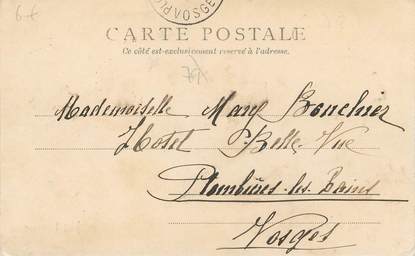 6€
VOSGES
CARTE POSTALE
Ce côté est exclusivement réservé à l'adresse.
Mademoiselle Mary Bouchier
Hotel Belle-Vue
Plombières-les-Bains
Vosges